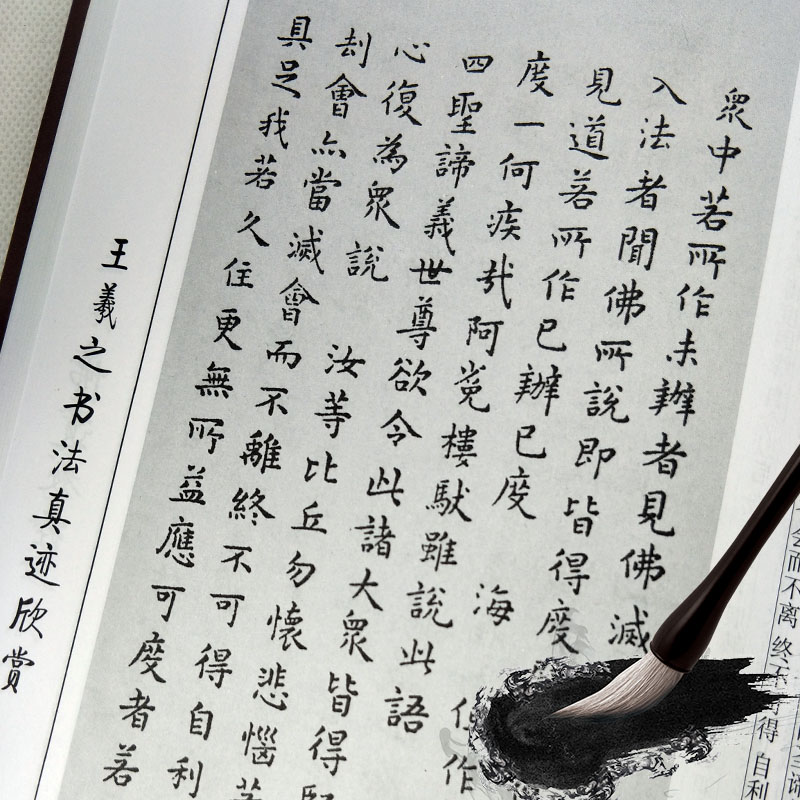 会而不离 终不可得 自利
衆中若所作未辦者見佛滅
入法者聞佛所說即皆得度
見道若所作已辦已度 海 但作
度一何疾哉阿㝹樓馱雖說此語
四聖諦義世尊欲令此諸大衆皆得
心復為衆說 汝等比丘勿懷悲惱若
刦會亦當滅會而不離終不可得自利
具足我若久住更無所益應可度者若
王羲之书法真迹欣赏